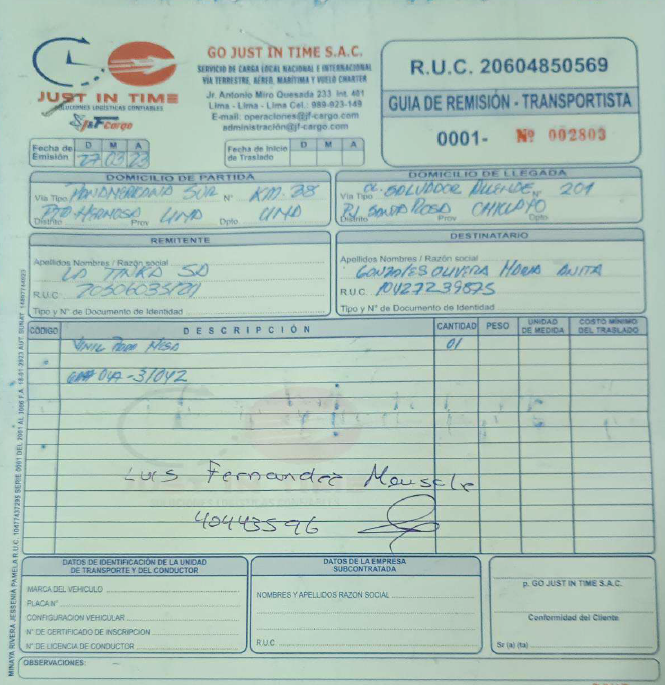 JUST IN TIME
SOLUCIONES LOGÍSTICAS CONFIABLES
J&F cargo
GO JUST IN TIME S.A.C.
SERVICIO DE CARGA LOCAL NACIONAL E INTERNACIONAL
VÍA TERRESTRE, AEREO, MARÍTIMA Y VUELO CHARTER
Jr. Antonio Miro Quesada 233 Int. 401
Lima - Lima - Lima Cel.: 989-023-149
E-mail: operaciones@jf-cargo.com
administración@jf-cargo.com
R.U.C. 20604850569
GUIA DE REMISIÓN - TRANSPORTISTA
0001- Nº 002803
Fecha de Emisión D M A
27 03 23
Fecha de Inicio de Traslado D M A
DOMICILIO DE PARTIDA
Vía Tipo PANAMERICANA SUR N° KM. 38
Distrito PTO HERMOSA Prov LIMA Dpto LIMA
DOMICILIO DE LLEGADA
Vía Tipo CL. SALVADOR ALLENDE N° 201
Distrito SANTA ROSA Prov CHICLAYO Dpto
REMITENTE
Apellidos Nombres / Razón social
LA TINKA SA
R.U.C.
Tipo y N° de Documento de Identidad
DESTINATARIO
Apellidos Nombres / Razón social
GONZALES OLIVERA MARIA ANITA
R.U.C. 10427239875
Tipo y N° de Documento de Identidad
CÓDIGO DESCRIPCIÓN CANTIDAD PESO UNIDAD DE MEDIDA COSTO MÍNIMO DEL TRASLADO
VINIL PARA MESA 01
014-31042
Luis Fernandez
40443596
DATOS DE IDENTIFICACIÓN DE LA UNIDAD
DE TRANSPORTE Y DEL CONDUCTOR
MARCA DEL VEHICULO
PLACA N°
CONFIGURACIÓN VEHICULAR
N° DE CERTIFICADO DE INSCRIPCION
N° DE LICENCIA DE CONDUCTOR
DATOS DE LA EMPRESA
SUBCONTRATADA
NOMBRES Y APELLIDOS RAZON SOCIAL
R.U.C.
p. GO JUST IN TIME S.A.C.
Conformidad del Cliente
Sr (a) (ta)
OBSERVACIONES:
MINAYA RIVERA JESSENIA PAMELA R.U.C. 10477437295 SERIE 0001 DEL 2001 AL 3000 F.A. 18-01-2023 AUT. SUNAT